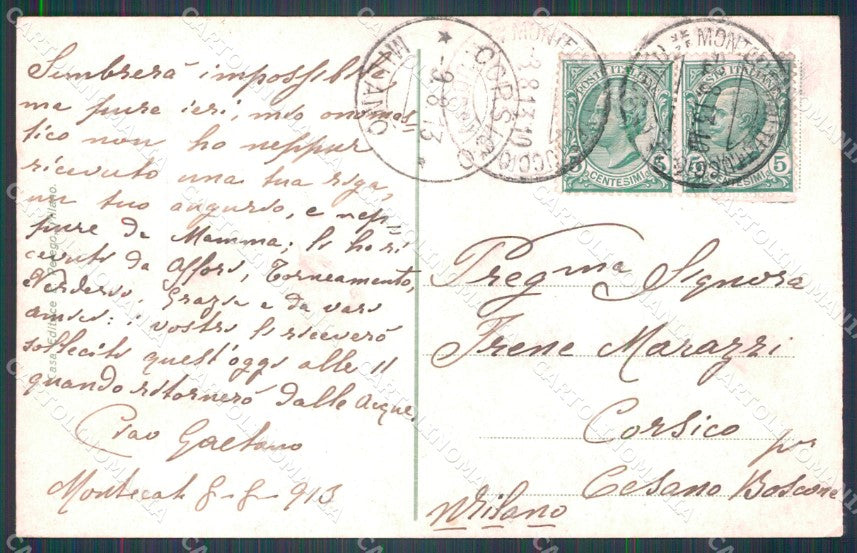 Sembrerà impossibile
ma pure ieri, mio onomas-
tico non ho neppur
ricevuto una tua riga,
un tuo augurio, e nep-
pure da Mamma; li ho ri
cevuti da Affori, Torneamento,
Verderio, Grazia e da vari
amici: i vostri li riceverò
solleciti quest'oggi alle 11
quando ritornerò dalle acque.
Ciao Gaetano
Montecat 8-8-913
Casa Editrice Milano.
MILANO
-9.8.13
CORSICO
POSTE ITALIANE
5 CENTESIMI 5
POSTE ITALIANE
5 CENTESIMI 5
Pregma Signora
Irene Marazzi
Corsico
per
Cesano Boscone
Milano
CARTOLINOMANIA